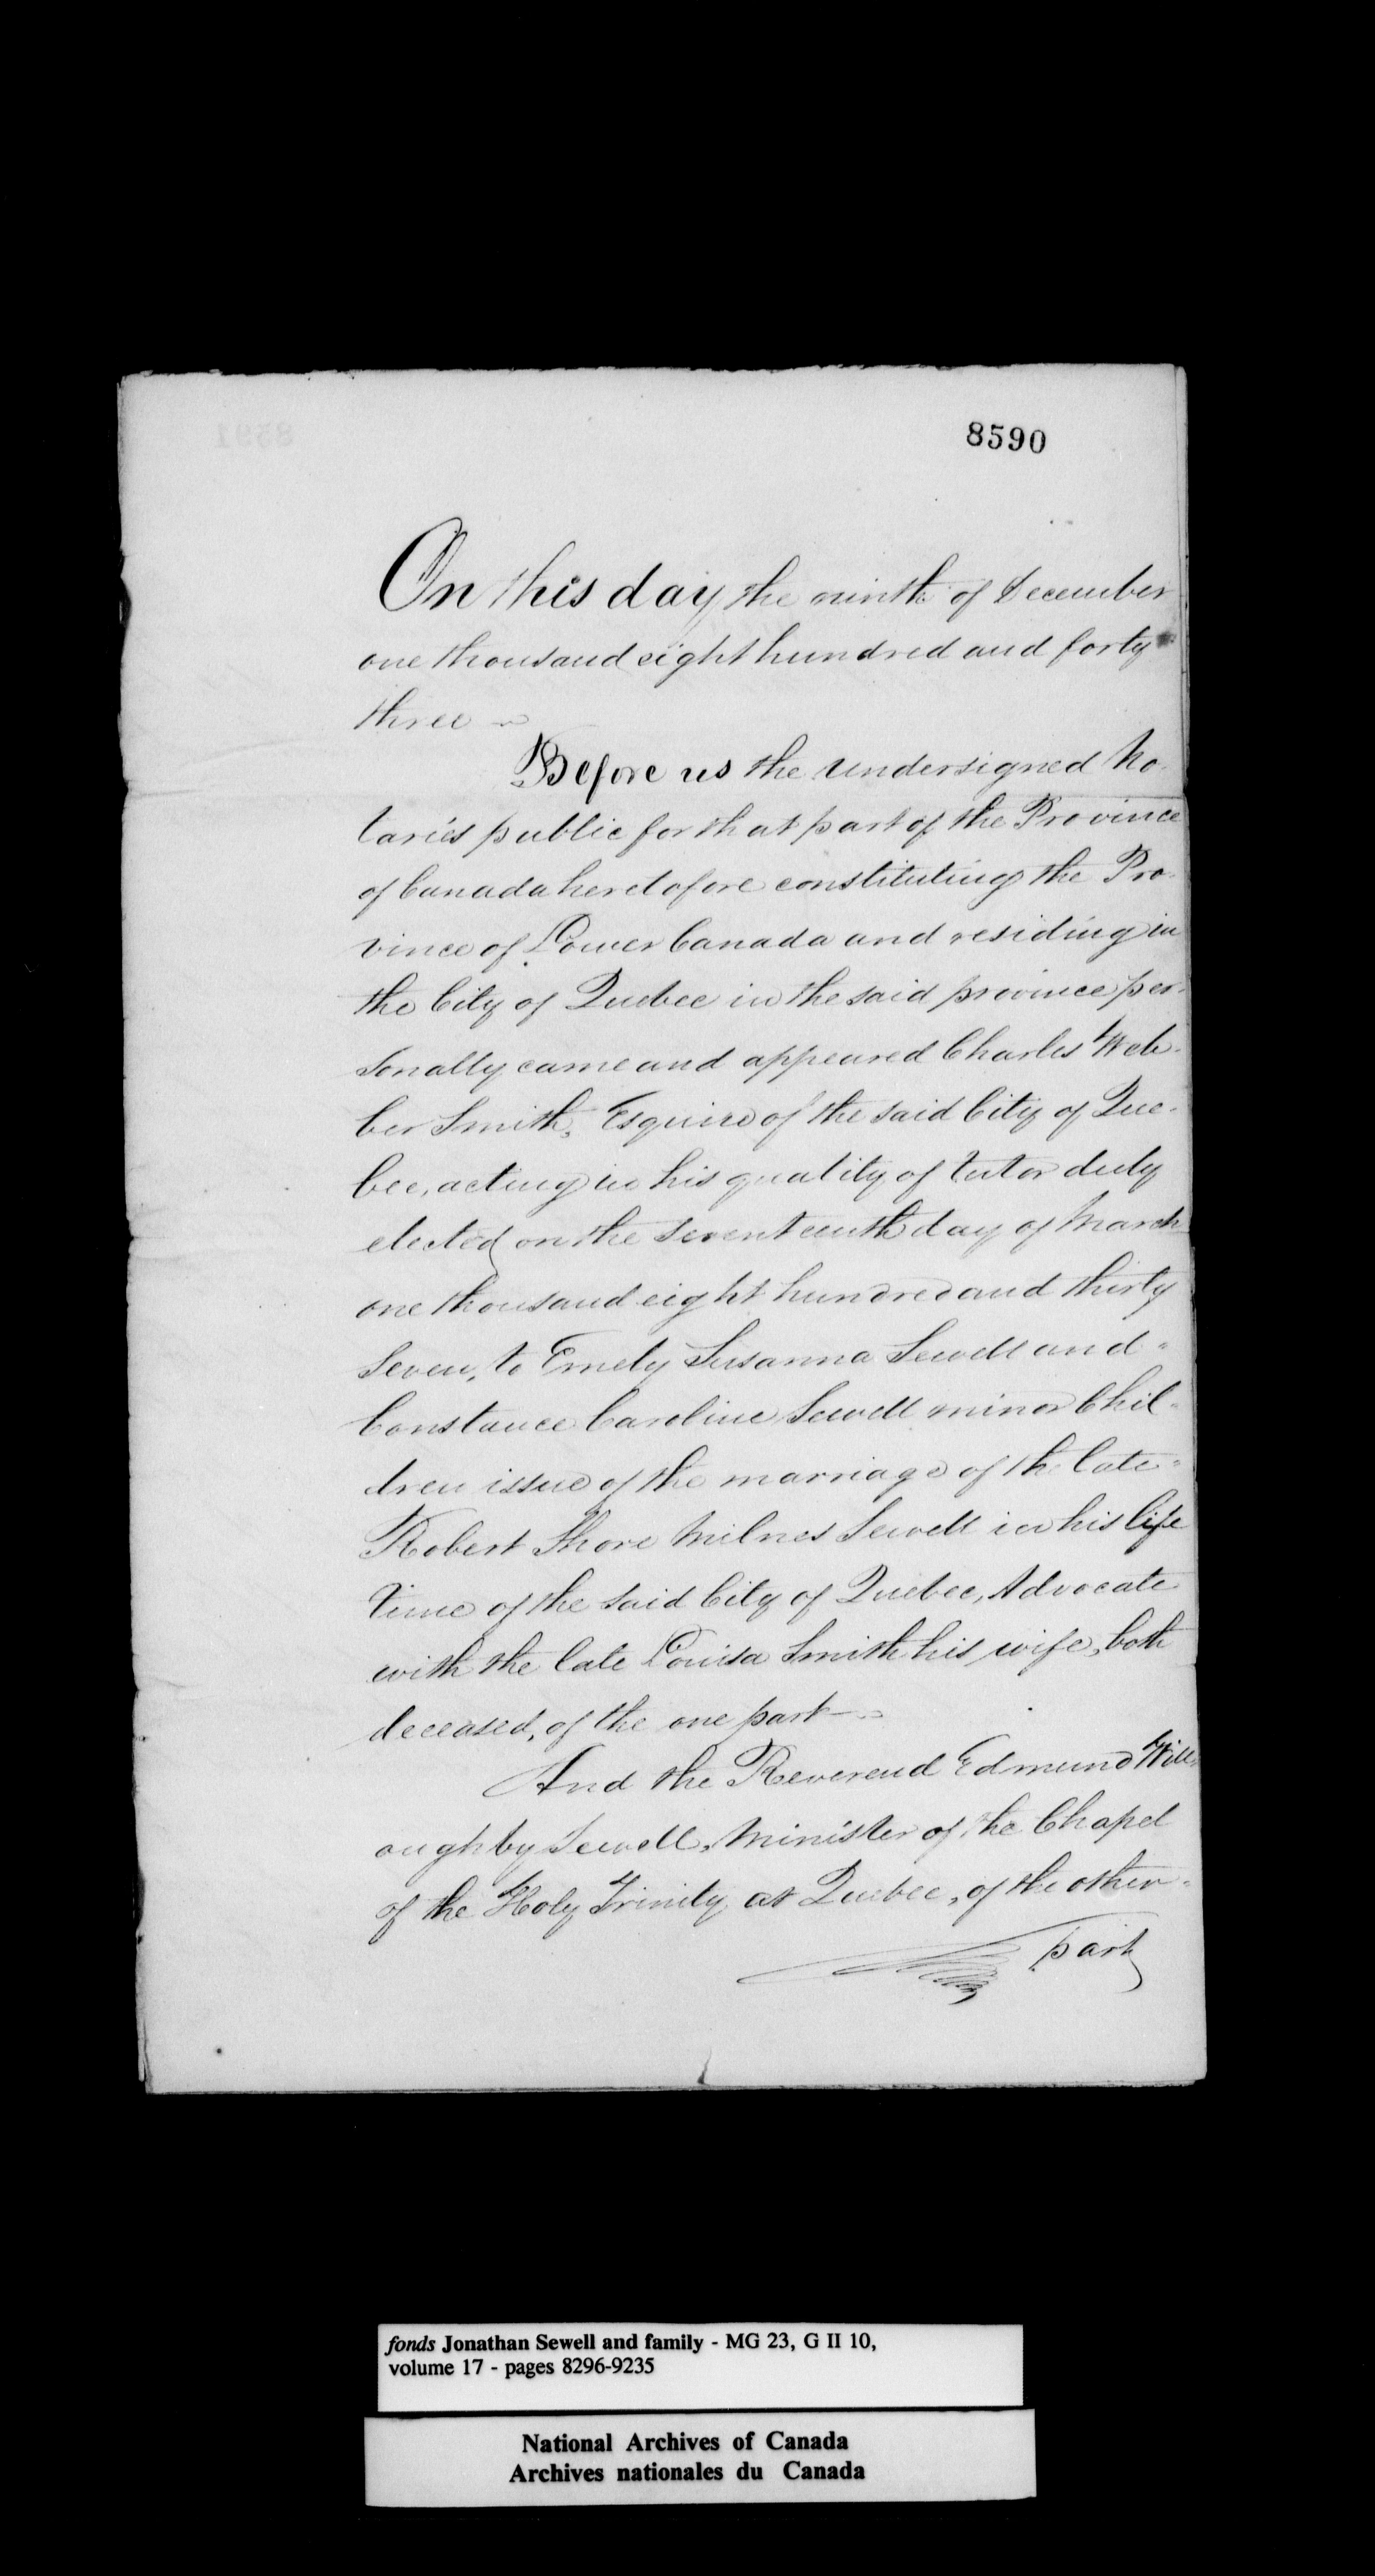 8590
On this day the ninth of December
one thousand eight hundred and forty
three
Before us the undersigned No-
taries public for that part of the Province
of Canada heretofore constituting the Pro-
vince of Lower Canada and residing in
the City of Quebec in the said province per-
sonally came and appeared Charles Web-
ber Smith, Esquire of the said City of Que-
bec, acting in his quality of tutor duly
elected on the seventeenth day of March
one thousand eight hundred and thirty
seven, to Emely Susanna Sewell and
Constance Caroline Sewell minor Chil-
dren issue of the marriage of the late
Robert Shore Milnes Sewell in his life
time of the said City of Quebec, Advocate
with the late Louisa Smith his wife, both
deceased, of the one part
And the Reverend Edmund Will-
oughby Sewell, Minister of the Chapel
of the Holy Trinity at Quebec, of the other
part
fonds Jonathan Sewell and family - MG 23, G II 10,
volume 17 - pages 8296-9235
National Archives of Canada
Archives nationales du Canada